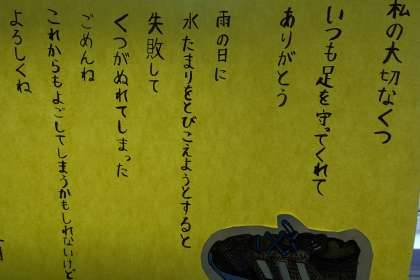 私の大切なくつ
いつも足を守ってくれて
ありがとう
雨の日に
水たまりをとびこえようとすると
失敗して
くつがぬれてしまった
ごめんね
これからもよごしてしまうかもしれないけど
よろしくね